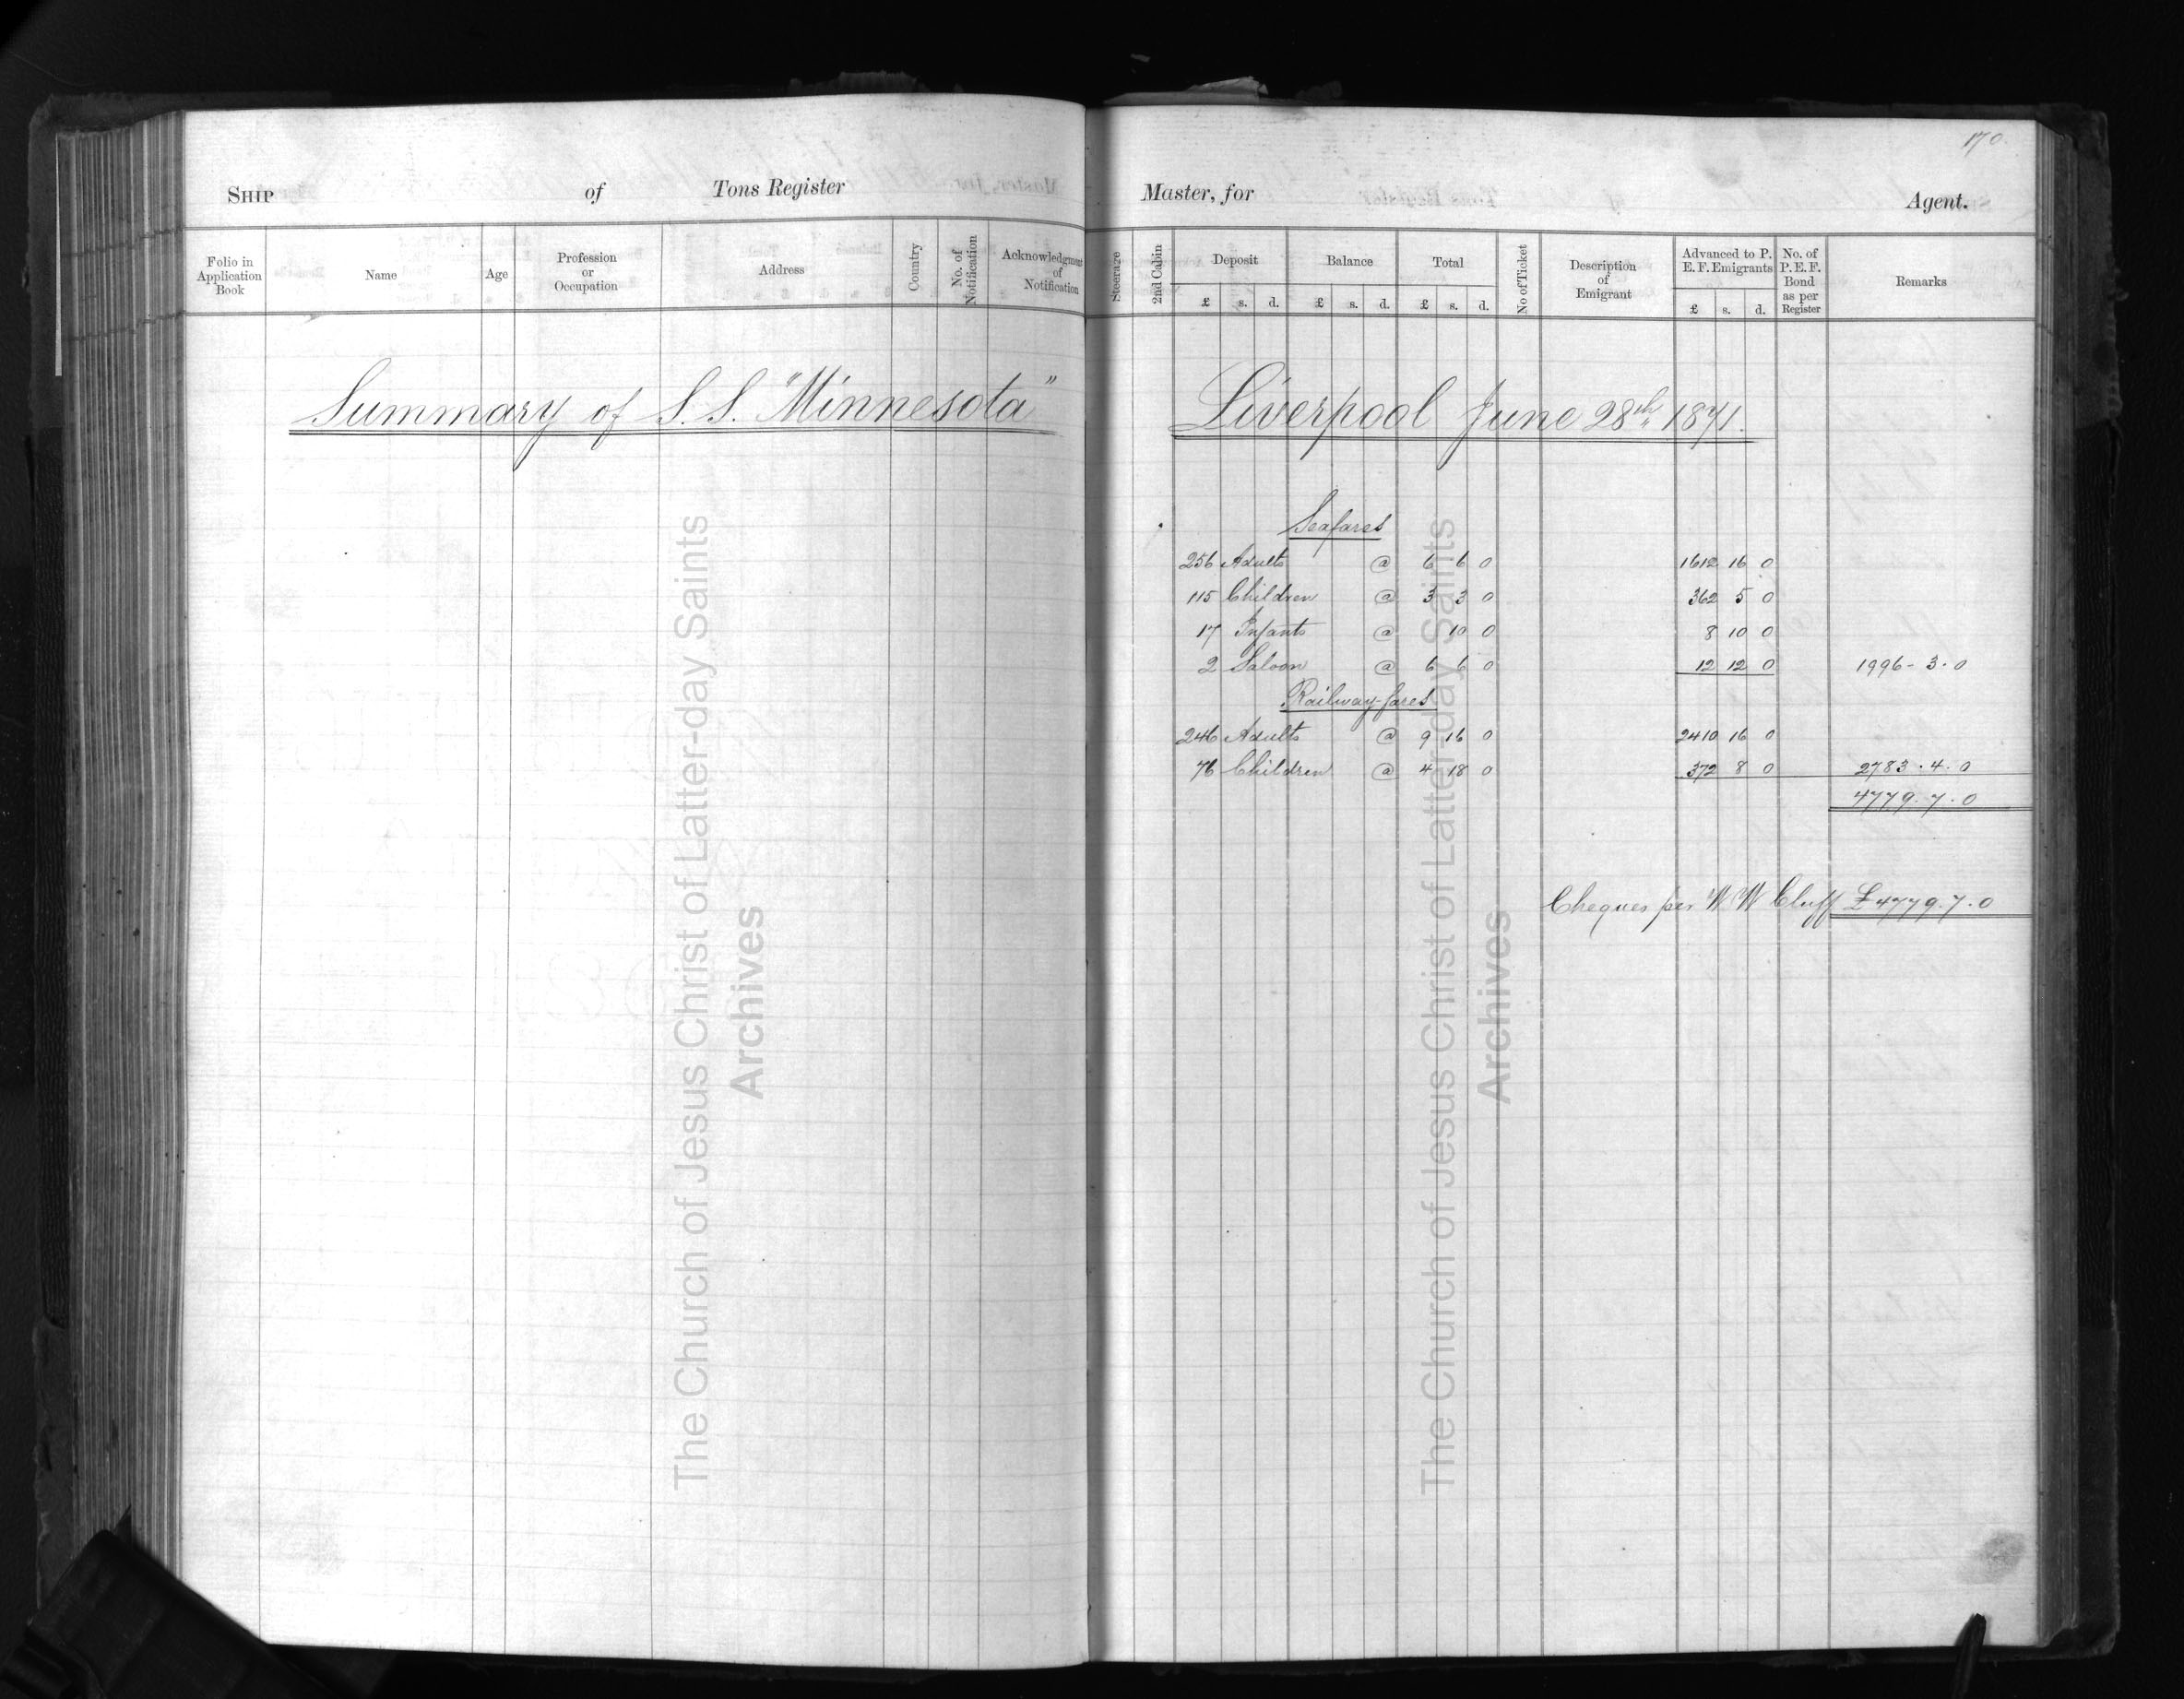 170
SHIP of Tons Register Master, for Agent.
Folio in Application Book Name Age Profession or Occupation Address Country No. of Notification Acknowledgment of Notification Steerage 2nd Cabin Deposit Balance Total No of Ticket Description of Emigrant Advanced to P. E. F. Emigrants No. of P. E. F. Bond as per Register Remarks
£ s. d. £ s. d. £ s. d. £ s. d.
Summary of S.S. "Minnesota" Liverpool June 28th 1871.
Seafares
256 Adults @ 6 6 0 1612 16 0
115 Children @ 3 3 0 362 5 0
17 Infants @ 10 0 8 10 0
2 Saloon @ 6 6 0 12 12 0 1996 - 3 . 0
Railway-fares
246 Adults @ 9 16 0 2410 16 0
76 Children @ 4 18 0 372 8 0 2783 . 4 . 0
4779 . 7 . 0
Cheques per W. W. Cluff £ 4779 . 7 . 0
The Church of Jesus Christ of Latter-day Saints
Archives
The Church of Jesus Christ of Latter-day Saints
Archives